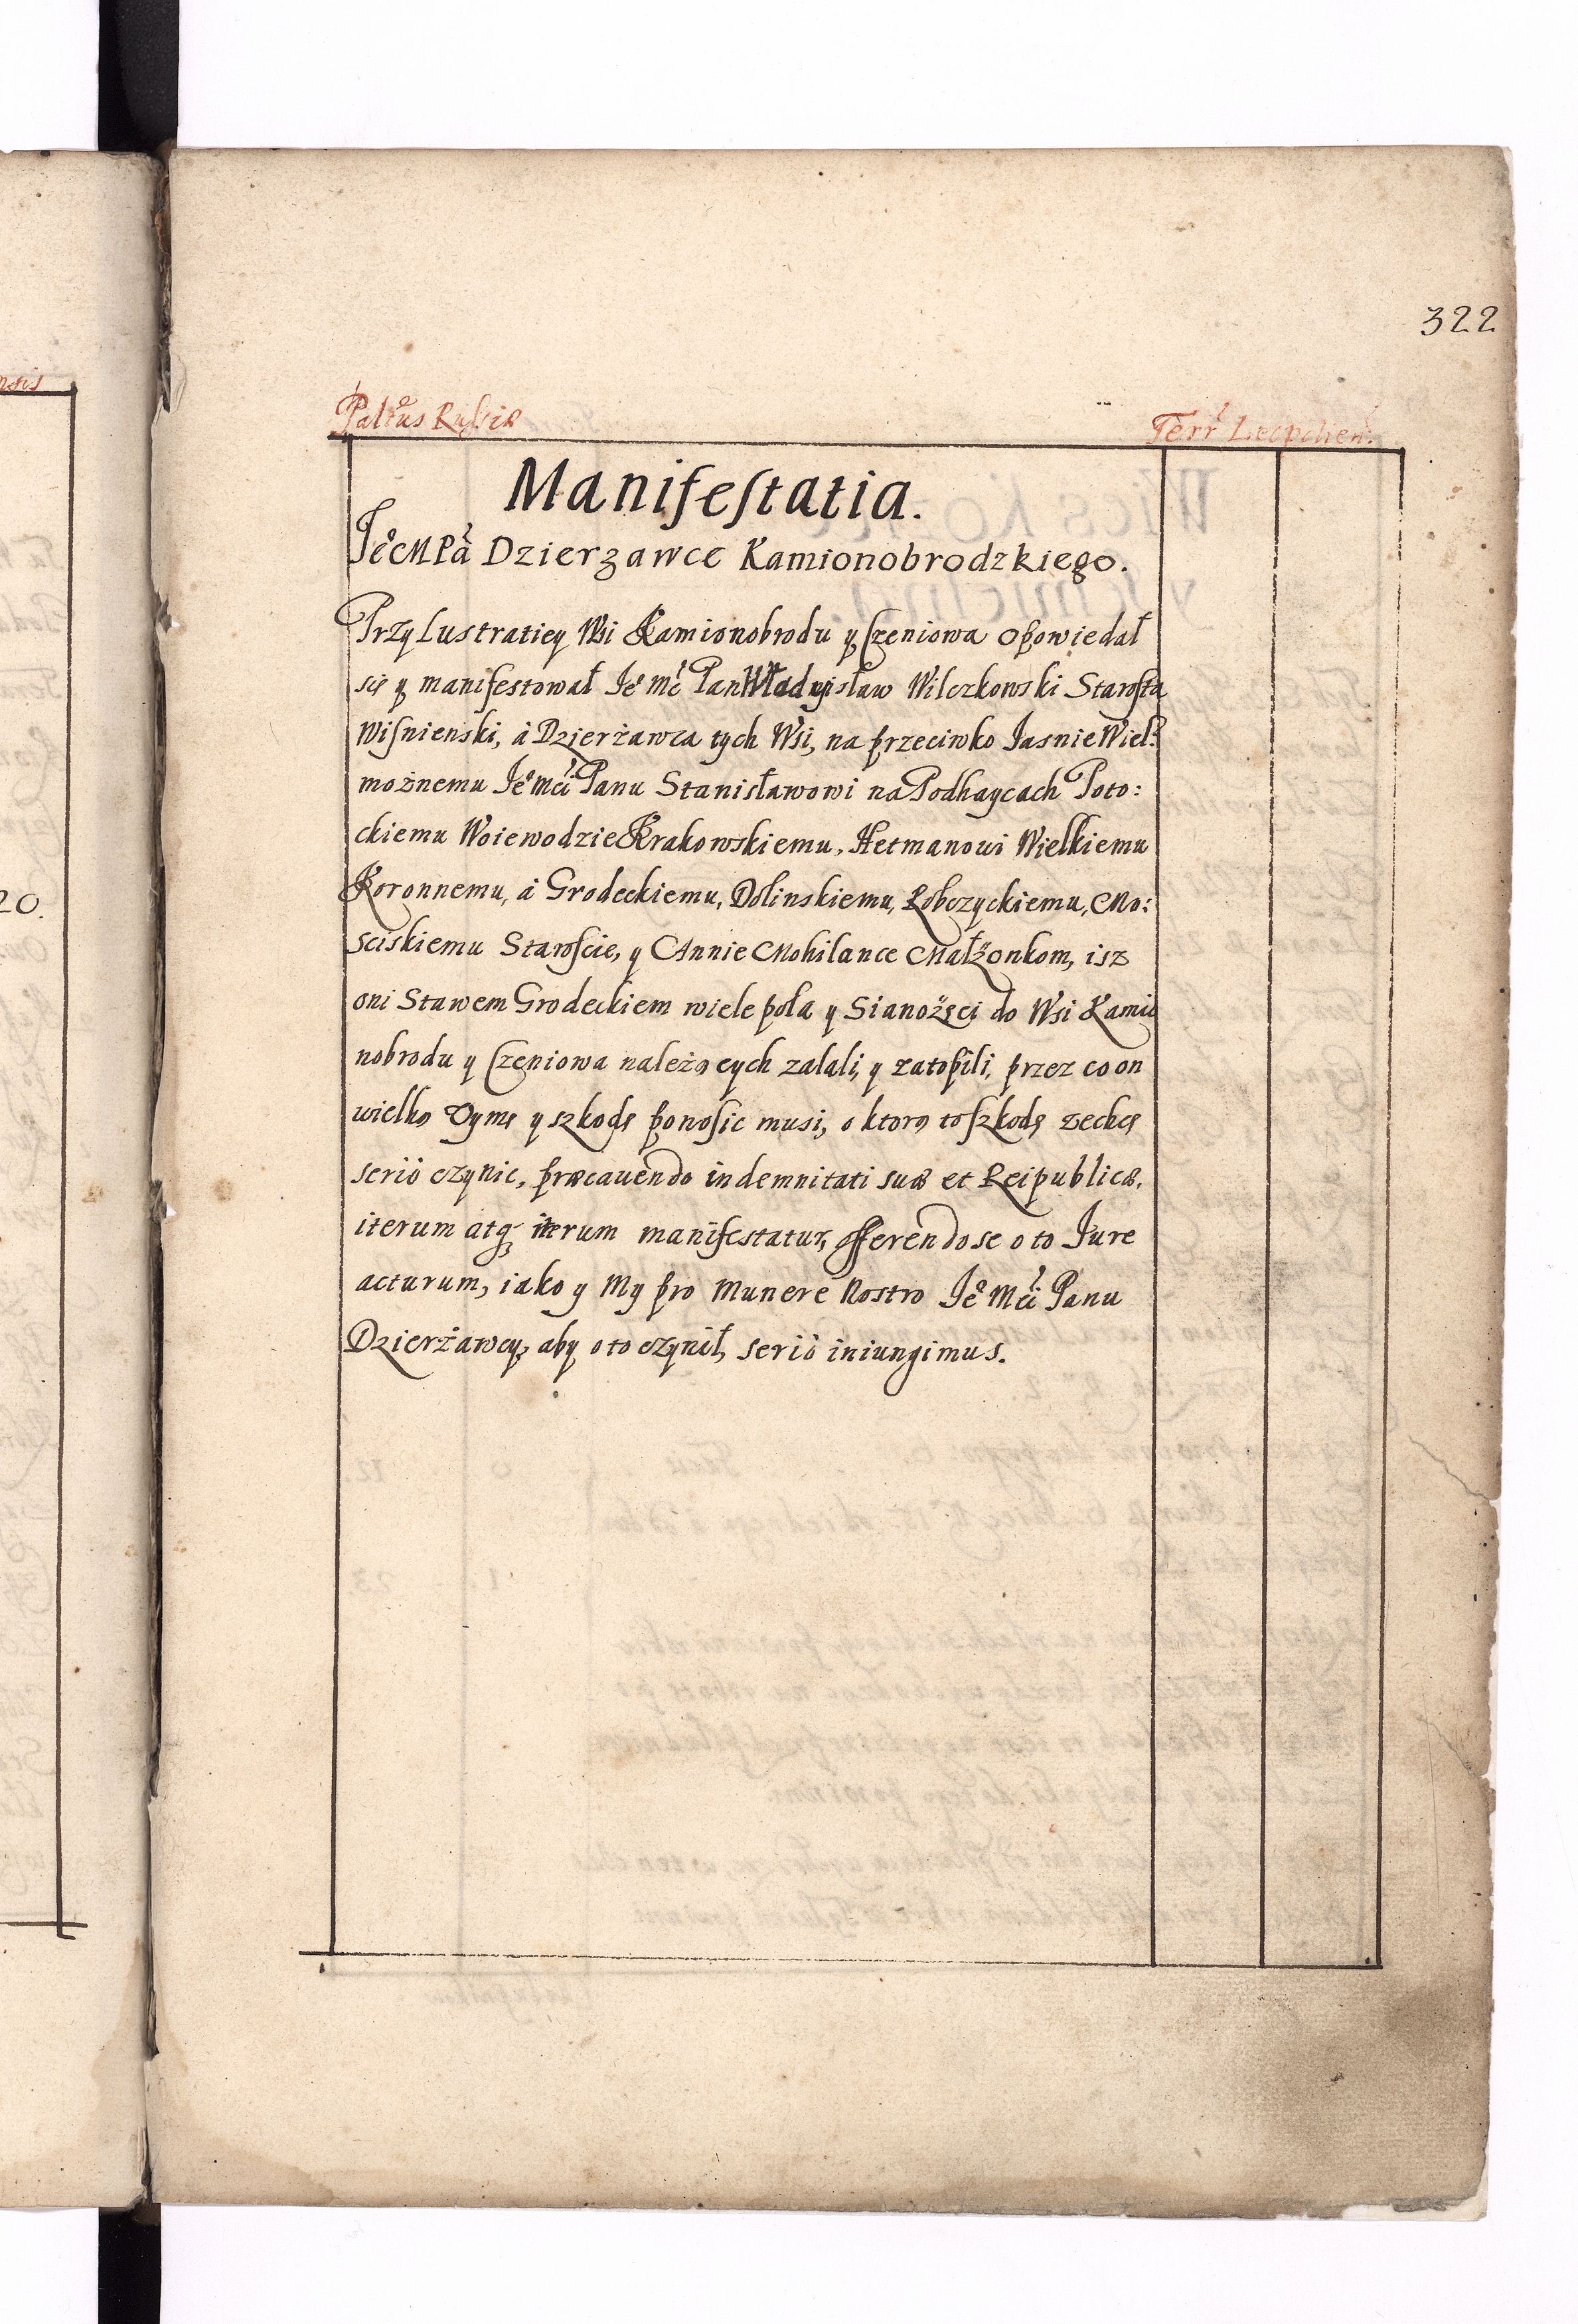 322
Paltus Russiæ
Terr Leopolien:
Manifestatia.
Je͛ MPa Dzierzawce Kamionobrodzkiego.
Przy Lustratiey Wsi Kamionobrodu y Czeniowa opowiedał
się y manifestował Je͛ Mć Pan Władysław Wilczkowski Starosta
Wisnienski, à Dzierżawca tych Wsi, na przeciwko Jasnie Wiel:
możnemu Je͛ Mci Panu Stanisławowi na Podhaycach Poto:
ckiemu Woiewodzie Krakowskiemu, Hetmanowi Wielkiemu
Koronnemu, à Grodeckiemu, Dolinskiemu, Robczyckiemu, Mo:
sciskiemu Staroscie, y Annie Mohilance Małżonkom, isz
oni Stawem Grodeckiem wiele pola y Sianożęci do Wsi Kamio
nobrodu y Czeniowa należących zalali, y zatopili, przez co on
wielką Uymę y szkodę ponosic musi, o ktorą to szkodę zechcę
seriò czynic, præcauendo indemnitati suæ et Reipublicæ.
iterum atq; iterum manifestatur, offerendo se o to Jure
acturum, iako y My pro Munere Nostro Je͛ Mci Panu
Dzierżawcy, aby o to czynił, seriò iniungimus.
20.